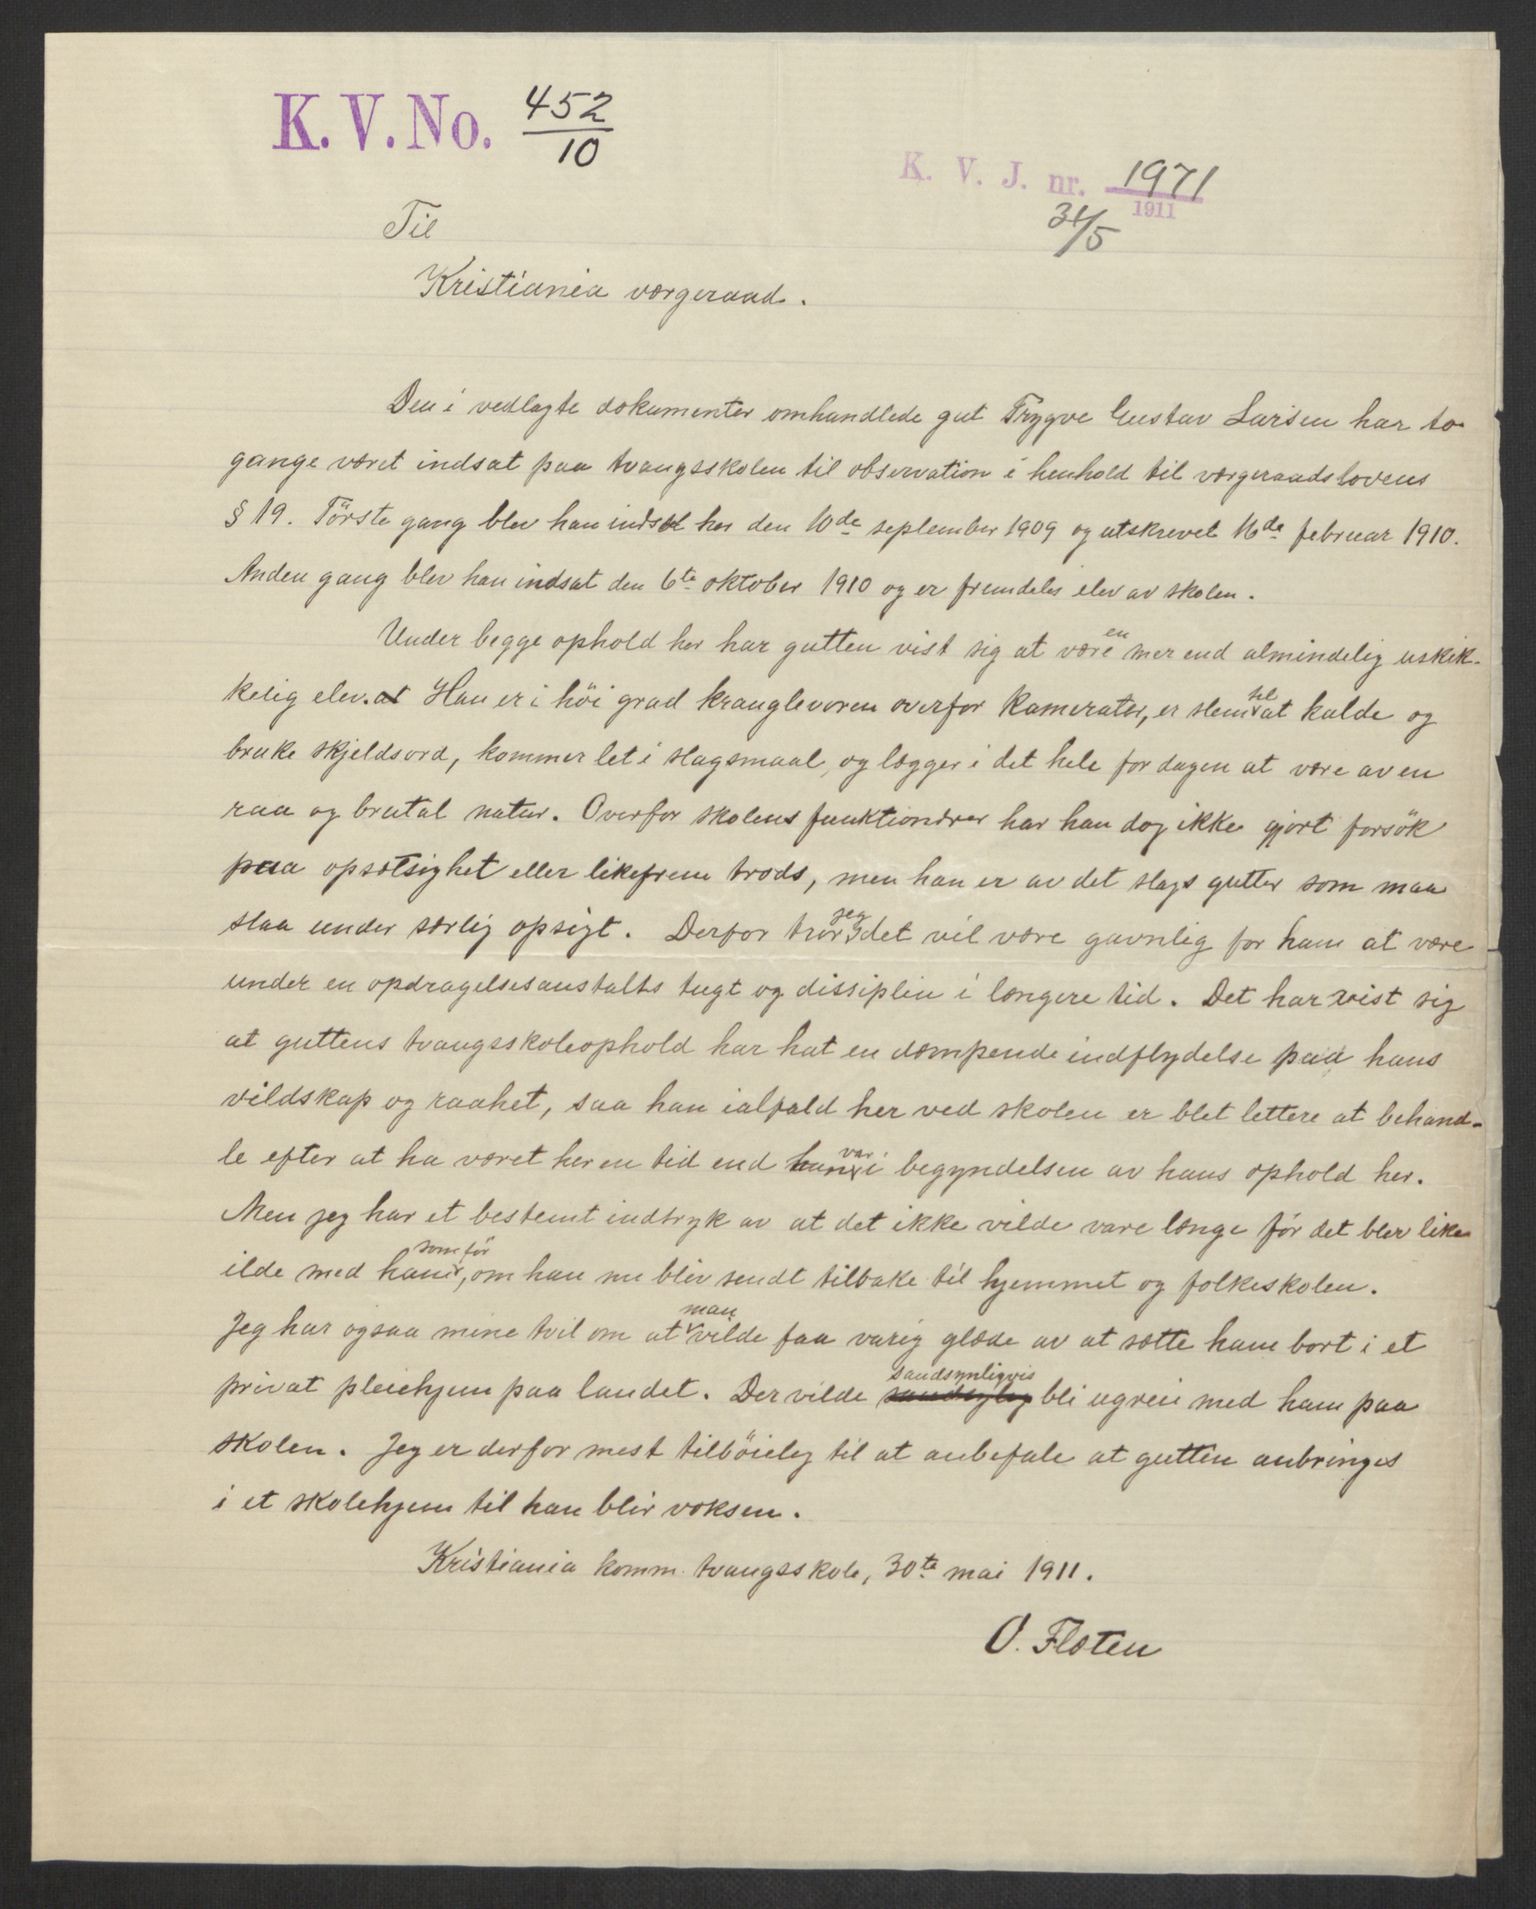 K. V. No. 452/10
K. V. J. nr. 1971
1911
31/5
Til
Kristiania værgeraad.
Den i vedlagte dokumenter omhandlede gut Trygve Gustav Larsen har to
gange været indsat paa tvangsskolen til observation i henhold til værgeraadslovens
§ 19. Første gang blev han indsat her den 10de september 1909 og utskrevet 16de februar 1910.
Anden gang blev han indsat den 6te oktober 1910 og er fremdeles elev av skolen.
Under begge ophold her har gutten vist sig at være en mer end almindelig uskik-
kelig elev. Han er i höi grad kranglevoren overfor kamerater, er slem til at kalde og
bruke skjeldsord, kommer let i slagsmaal, og lægger i det hele for dagen at være av en
raa og brutal natur. Overfor skolens funktionærer har han dog ikke gjort forsök
paa opsætsighet eller likefrem trods, men han er av det slags gutter som maa
staa under særlig opsigt. Derfor tror jeg det vil være gavnlig for ham at være
under en opdragelsesanstalts tugt og dissiplin i længere tid. Det har vist sig
at guttens tvangsskoleophold har hat en dæmpende indflydelse paa hans
vildskap og raahet, saa han ialfald her ved skolen er blet lettere at behand-
le efter at ha været her en tid end han var i begyndelsen av hans ophold her.
Men jeg har et bestemt indtryk av at det ikke vilde vare længe för det blev like
ilde med ham som för, om han nu blir sendt tilbake til hjemmet og folkeskolen.
Jeg har ogsaa mine tvil om at man vilde faa varig glæde av at sætte ham bort i et
privat pleiehjem paa landet. Der vilde sandsynligvis bli ugrei med ham paa
skolen. Jeg er derfor mest tilböielig til at anbefale at gutten anbringes
i et skolehjem til han blir voksen.
Kristiania komm. tvangsskole, 30te mai 1911.
O. Fløten